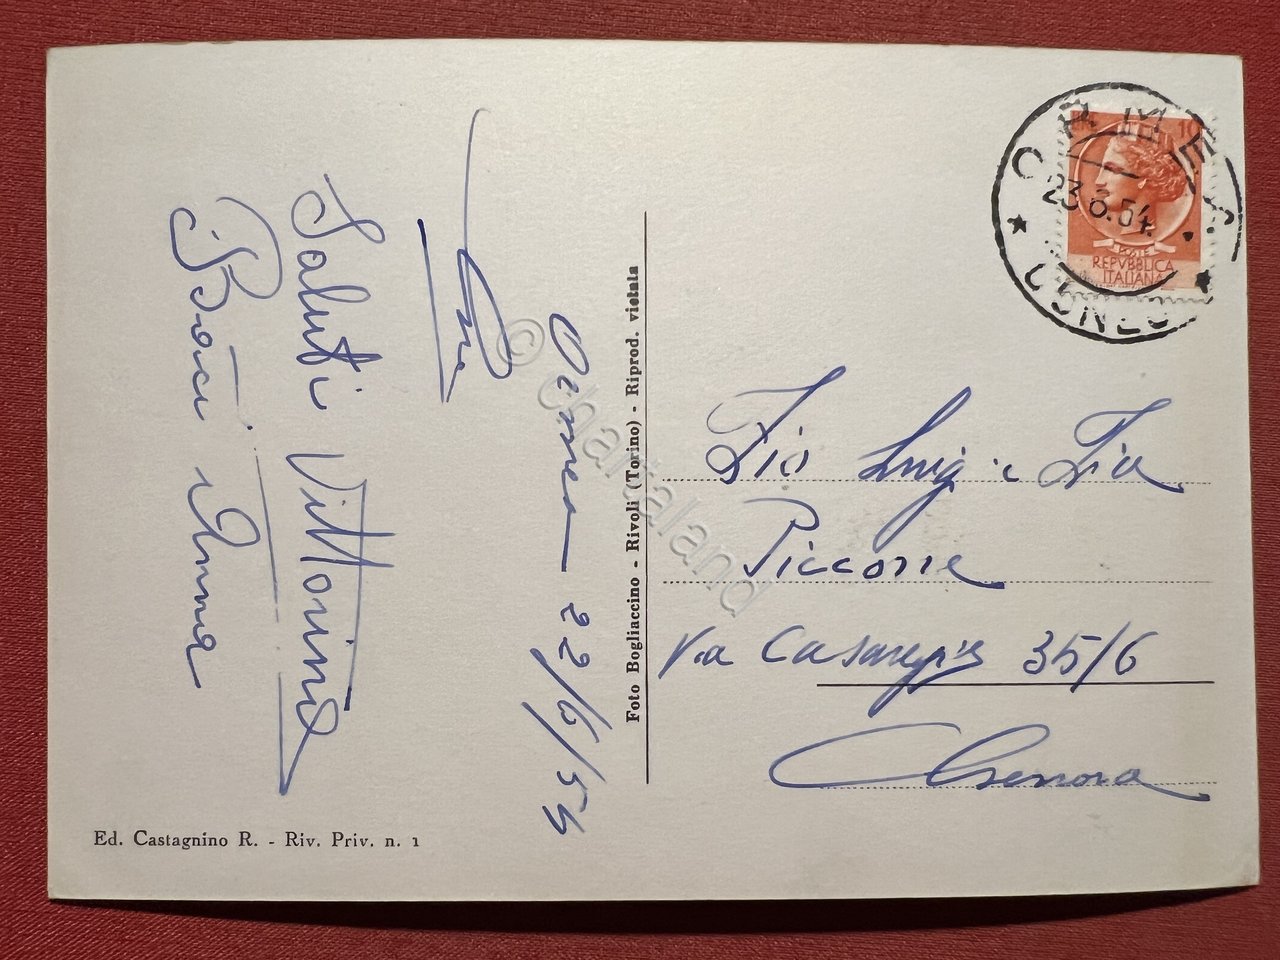 Ormea 22/6/54
Saluti Vittorino
Baci Anna
Foto Bogliaccino - Rivoli (Torino) - Riprod. vietata
Ed. Castagnino R. - Riv. Priv. n. 1
L. 10
POSTE
REPVBBLICA
ITALIANA
ORMEA
23.6.54.
* CUNEO *
Zio Luigi e Zia
Piccone
Via Casaregis 35/6
Genova
© chartaland